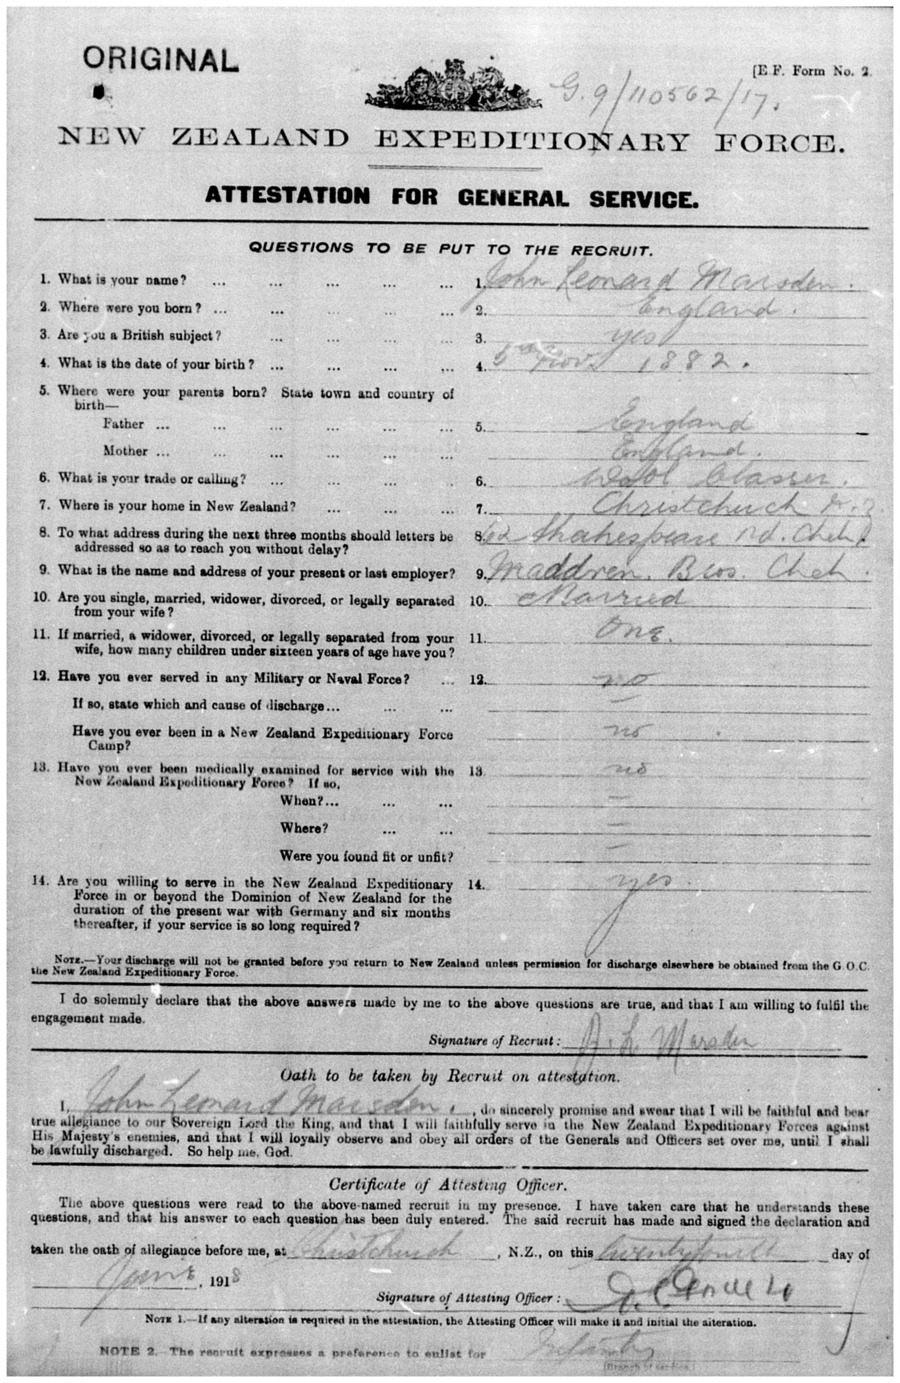 ORIGINAL
[E.F. Form No. 2.
G. 9/110562/17.
NEW ZEALAND EXPEDITIONARY FORCE.
ATTESTATION FOR GENERAL SERVICE.
QUESTIONS TO BE PUT TO THE RECRUIT.
1. What is your name? ... ... ... ... 1. John Leonard Marsden.
2. Where were you born? ... ... ... ... 2. England.
3. Are you a British subject? ... ... ... 3. yes
4. What is the date of your birth? ... ... ... ... 4. 5th Nov. 1882.
5. Where were your parents born? State town and country of
birth—
Father ... ... ... ... ... 5. England
Mother ... ... ... ... ... England.
6. What is your trade or calling? ... ... ... 6. Wool Classer.
7. Where is your home in New Zealand? ... ... ... 7. Christchurch N.Z.
8. To what address during the next three months should letters be 8. 62 Shakespeare Rd. Chch.
addressed so as to reach you without delay?
9. What is the name and address of your present or last employer? 9. Maddren. Bros. Chch.
10. Are you single, married, widower, divorced, or legally separated 10. Married
from your wife?
11. If married, a widower, divorced, or legally separated from your 11. One.
wife, how many children under sixteen years of age have you?
12. Have you ever served in any Military or Naval Force? ... 12. no
If so, state which and cause of discharge... ... ... —
Have you ever been in a New Zealand Expeditionary Force no
Camp?
13. Have you ever been medically examined for service with the 13. no
New Zealand Expeditionary Force? If so,
When?... ... ... —
Where? ... ... —
Were you found fit or unfit? —
14. Are you willing to serve in the New Zealand Expeditionary 14. yes.
Force in or beyond the Dominion of New Zealand for the
duration of the present war with Germany and six months
thereafter, if your service is so long required?
NOTE.—Your discharge will not be granted before you return to New Zealand unless permission for discharge elsewhere be obtained from the G.O.C.
the New Zealand Expeditionary Force.
I do solemnly declare that the above answers made by me to the above questions are true, and that I am willing to fulfil the
engagement made.
Signature of Recruit: J. L. Marsden
Oath to be taken by Recruit on attestation.
I, John Leonard Marsden., do sincerely promise and swear that I will be faithful and bear
true allegiance to our Sovereign Lord the King, and that I will faithfully serve in the New Zealand Expeditionary Forces against
His Majesty's enemies, and that I will loyally observe and obey all orders of the Generals and Officers set over me, until I shall
be lawfully discharged. So help me, God.
Certificate of Attesting Officer.
The above questions were read to the above-named recruit in my presence. I have taken care that he understands these
questions, and that his answer to each question has been duly entered. The said recruit has made and signed the declaration and
taken the oath of allegiance before me, at Christchurch, N.Z., on this twentyfourth day of
June, 1918
Signature of Attesting Officer:
NOTE 1.—If any alteration is required in the attestation, the Attesting Officer will make it and initial the alteration.
NOTE 2. The recruit expresses a preference to enlist for Infantry
(Branch of service.)